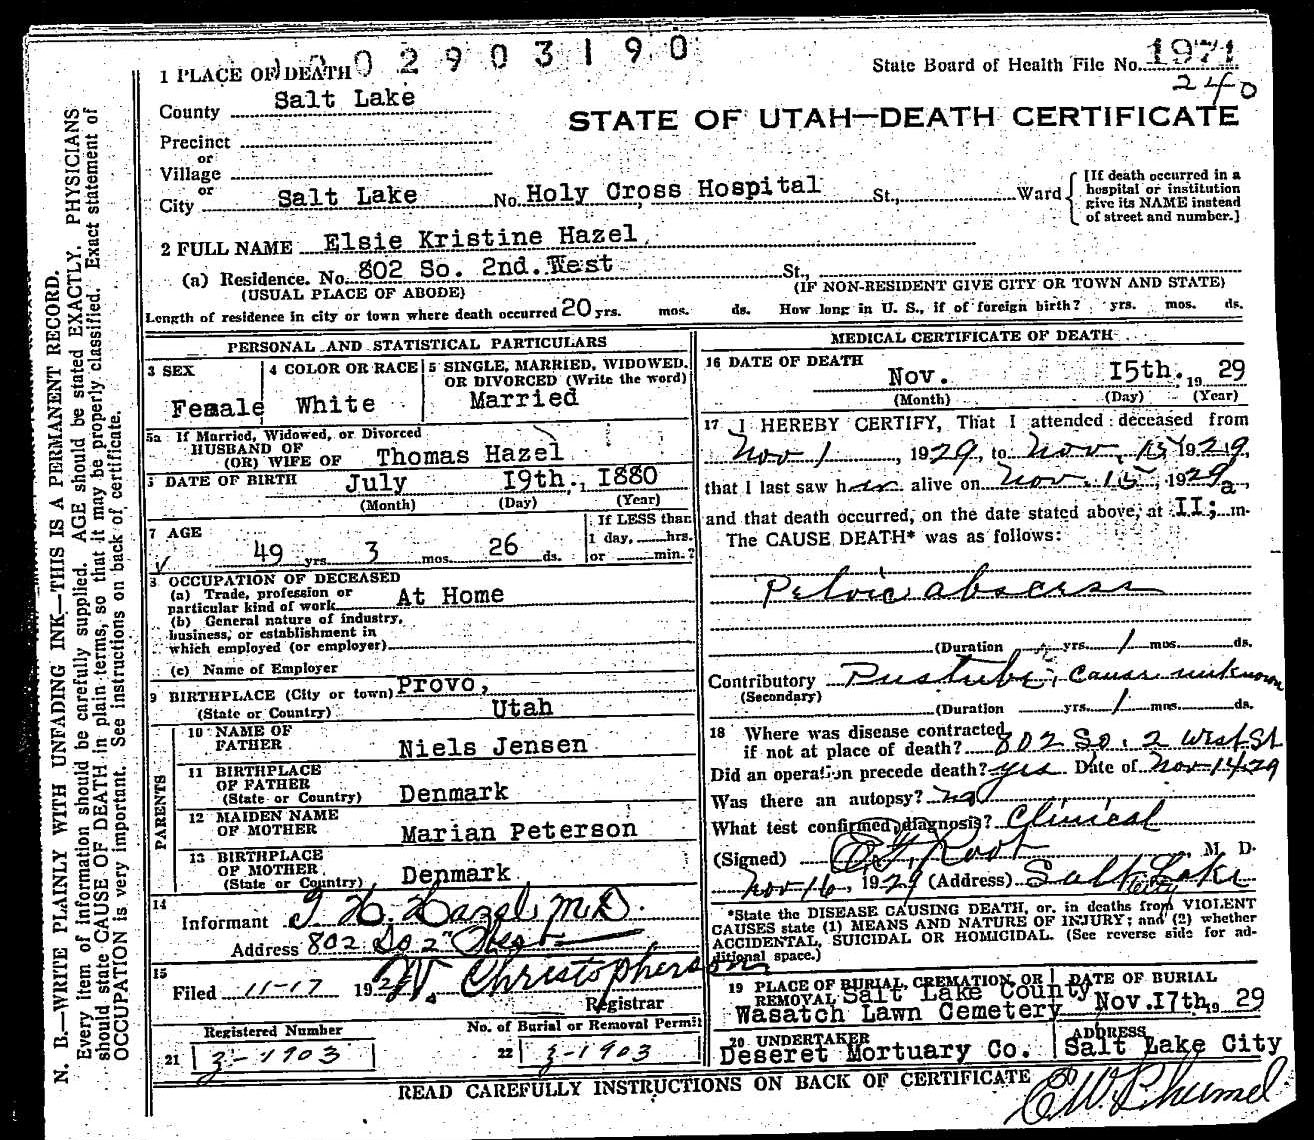 1 PLACE OF DEATH 002903190
State Board of Health File No. 1971
240
County Salt Lake
STATE OF UTAH—DEATH CERTIFICATE
Precinct
or
Village
or
City Salt Lake No. Holy Cross Hospital St., Ward
[If death occurred in a
hospital or institution
give its NAME instead
of street and number.]
2 FULL NAME Elsie Kristine Hazel
(a) Residence. No. 802 So. 2nd. West St.,
(USUAL PLACE OF ABODE) (IF NON-RESIDENT GIVE CITY OR TOWN AND STATE)
Length of residence in city or town where death occurred 20 yrs. mos. ds. How long in U. S., if of foreign birth? yrs. mos. ds.
PERSONAL AND STATISTICAL PARTICULARS
3 SEX Female
4 COLOR OR RACE White
5 SINGLE, MARRIED, WIDOWED,
OR DIVORCED (Write the word)
Married
5a If Married, Widowed, or Divorced
HUSBAND OF
(OR) WIFE OF Thomas Hazel
DATE OF BIRTH July 19th., 1880
(Month) (Day) (Year)
7 AGE
49 yrs. 3 mos. 26 ds.
If LESS than
1 day, hrs.
or min.?
8 OCCUPATION OF DECEASED
(a) Trade, profession or
particular kind of work At Home
(b) General nature of industry,
business, or establishment in
which employed (or employer)
(c) Name of Employer
9 BIRTHPLACE (City or town) Provo,
(State or Country) Utah
PARENTS
10 NAME OF
FATHER Niels Jensen
11 BIRTHPLACE
OF FATHER
(State or Country) Denmark
12 MAIDEN NAME
OF MOTHER Marian Peterson
13 BIRTHPLACE
OF MOTHER
(State or Country) Denmark
14
Informant T H Hazel, M.D.
Address 802 So 2" West
15
Filed 11-17 192 W. Christopherson
Registrar
Registered Number
21 3-1903
No. of Burial or Removal Permit
22 3-1903
MEDICAL CERTIFICATE OF DEATH
16 DATE OF DEATH
Nov. 15th. 19 29
(Month) (Day) (Year)
17 I HEREBY CERTIFY, That I attended deceased from
Nov 1, 1929, to Nov. 15 1929,
that I last saw her alive on Nov. 15, 1929
and that death occurred, on the date stated above, at 11; a m.
The CAUSE DEATH* was as follows:
Pelvic abscess
(Duration yrs. 1 mos. ds.
Contributory Pus tube, cause unknown
(Secondary)
(Duration yrs. 1 mos. ds.
18 Where was disease contracted
if not at place of death? 802 So. 2 West St
Did an operation precede death? yes Date of Nov 14 29
Was there an autopsy? no
What test confirmed diagnosis? Clinical
(Signed) Root M. D.
Nov 16, 1929 (Address) Salt Lake City
*State the DISEASE CAUSING DEATH, or, in deaths from VIOLENT
CAUSES state (1) MEANS AND NATURE OF INJURY; and (2) whether
ACCIDENTAL, SUICIDAL OR HOMICIDAL. (See reverse side for ad-
ditional space.)
19 PLACE OF BURIAL, CREMATION, OR
REMOVAL Salt Lake County
Wasatch Lawn Cemetery
DATE OF BURIAL
Nov. 17th 19 29
20 UNDERTAKER
Deseret Mortuary Co.
ADDRESS
Salt Lake City
READ CAREFULLY INSTRUCTIONS ON BACK OF CERTIFICATE
N. B.—WRITE PLAINLY WITH UNFADING INK—THIS IS A PERMANENT RECORD.
Every item of information should be carefully supplied. AGE should be stated EXACTLY. PHYSICIANS
should state CAUSE OF DEATH in plain terms, so that it may be properly classified. Exact statement of
OCCUPATION is very important. See instructions on back of certificate.